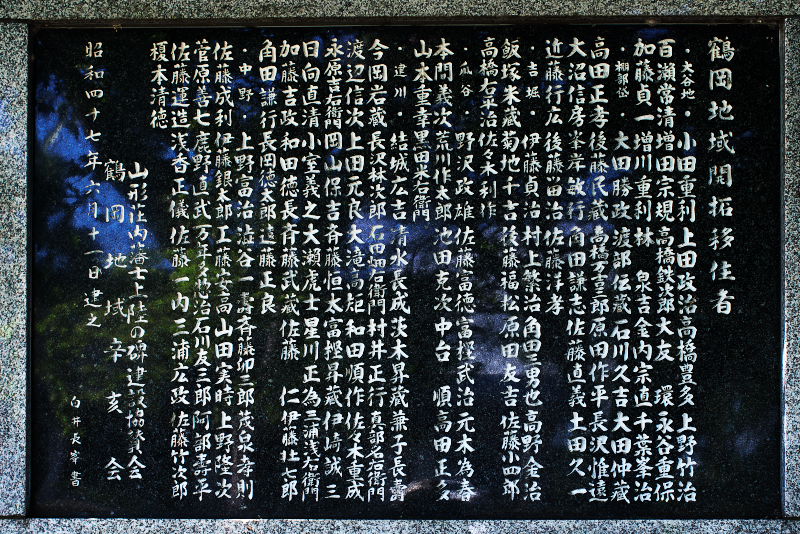 鶴岡地域開拓移住者
・大谷地・小田重利 上田政治 高橋豊多 上野竹治
百瀬常清 増田宗規 高橋鉄次郎 大友 環 永谷重保
加藤貞一 増川重利 林 泉吉 金内宗直 千葉峯治
・棚部岱・大田勝政 渡部伝蔵 石川久吉 大田仲蔵
高田正孝 後藤民蔵 高橋万三郎 原田作平 長沢惟遠
大沼信房 峯岸敏行 角田謙志 佐藤直義 土田久一
近藤行広 後藤留治 佐藤淳孝
・吉堀・伊藤貞治 村上繁治 角田三男也 高野金治
飯塚米蔵 菊地千吉 後藤福松 原田友吉 佐藤小四郎
高橋右平治 佐々木利作
・瓜谷・野沢政雄 佐藤富徳 富樫武治 元木為春
本間義次 荒川作太郎 池田克次 中台 順 高田正多
山本重幸 黒田米右衛門
・建川・結城広吉 清水長成 茨木昇蔵 兼子長壽
今岡岩蔵 長沢林次郎 石田畑右衛門 村井正行 真部名右衛門
渡辺信次 上田元良 大滝高矩 和田順作 佐々木重成
永原吉右衛門 岡山保吉 斉藤恒太 富樫昇蔵 伊崎誠三
日向直清 小室義之 大瀬虎士 星川正為 三浦浅右衛門
加藤吉政 和田徳長 斉藤武蔵 佐藤 仁 伊藤壮七郎
角田謙行 長岡徳太郎 遠藤正良
・中野・上野富治 澁谷一壽 斉藤卯三郎 茂泉寿則
佐藤成利 伊藤銀太郎 工藤安高 山田実時 上野隆次
菅原善七 鹿野直武 万年多兔治 石川友三郎 阿部壽平
佐藤運造 浅香正儀 佐藤一内 三浦広政 佐藤竹次郎
榎本清徳
山形荘内藩士上陸の碑建設協賛会
鶴岡地域辛亥会
昭和四十七年六月十一日建之
白井長峯書